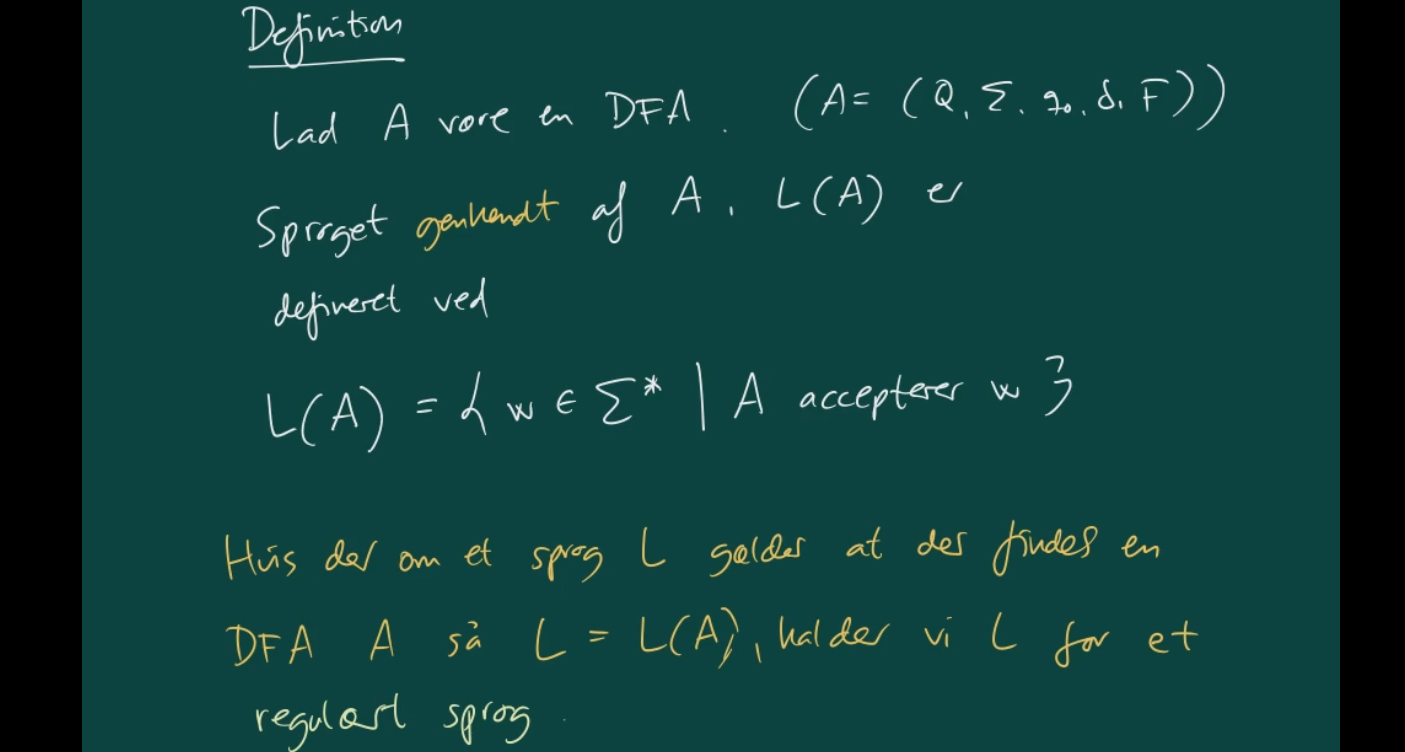 Definition
Lad A være en DFA. (A = (Q, Σ, q₀, δ, F))
Sproget genkendt af A, L(A) er
defineret ved
L(A) = { w ∈ Σ* | A accepterer w }
Hvis der om et sprog L gælder at der findes en
DFA A så L = L(A), kalder vi L for et
regulært sprog.